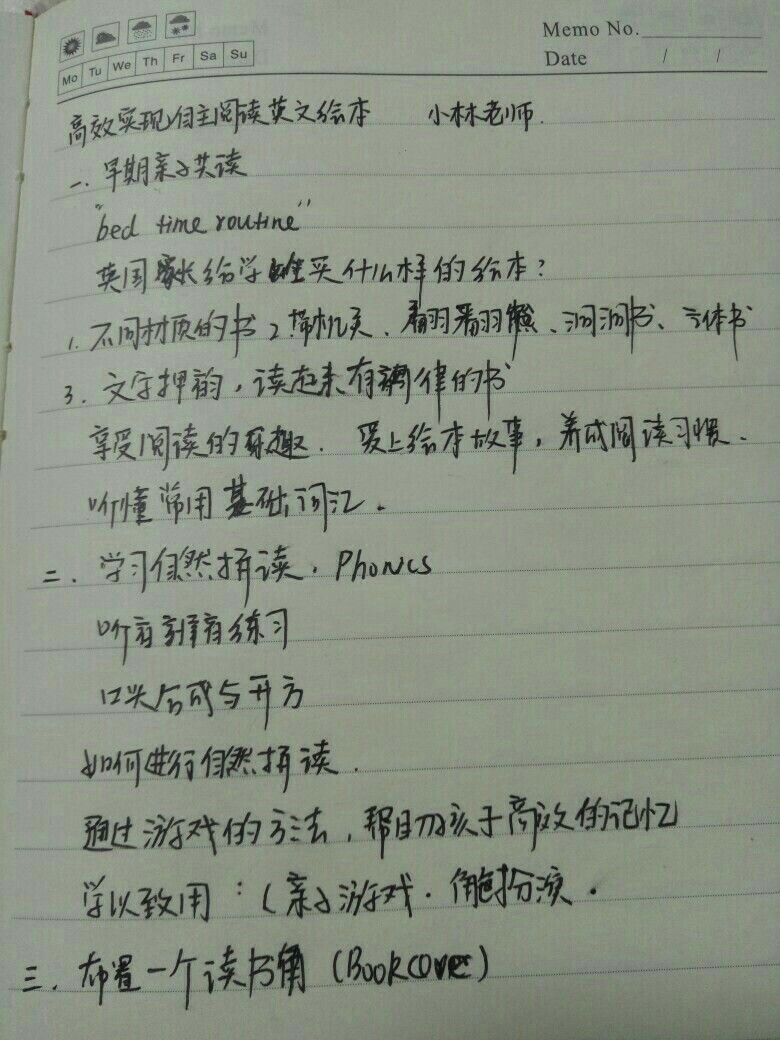 Memo No.
Mo Tu We Th Fr Sa Su
Date / /
高效实现自主阅读英文绘本 小林老师.
一、早期亲子共读
"bed time routine"
英国家长给学娃买什么样的绘本?
1. 不同材质的书 2. 带机关、翻翻书、洞洞书、立体书
3. 文字押韵,读起来有韵律的书
享受阅读的乐趣. 爱上绘本故事,养成阅读习惯.
听懂常用基础词汇.
二. 学习自然拼读. Phonics
听音辨音练习
口头合成与开方
如何进行自然拼读.
通过游戏的方法,帮助孩子高效的记忆
学以致用:(亲子游戏. 角色扮演.
三. 布置一个读书角 (Book cover)